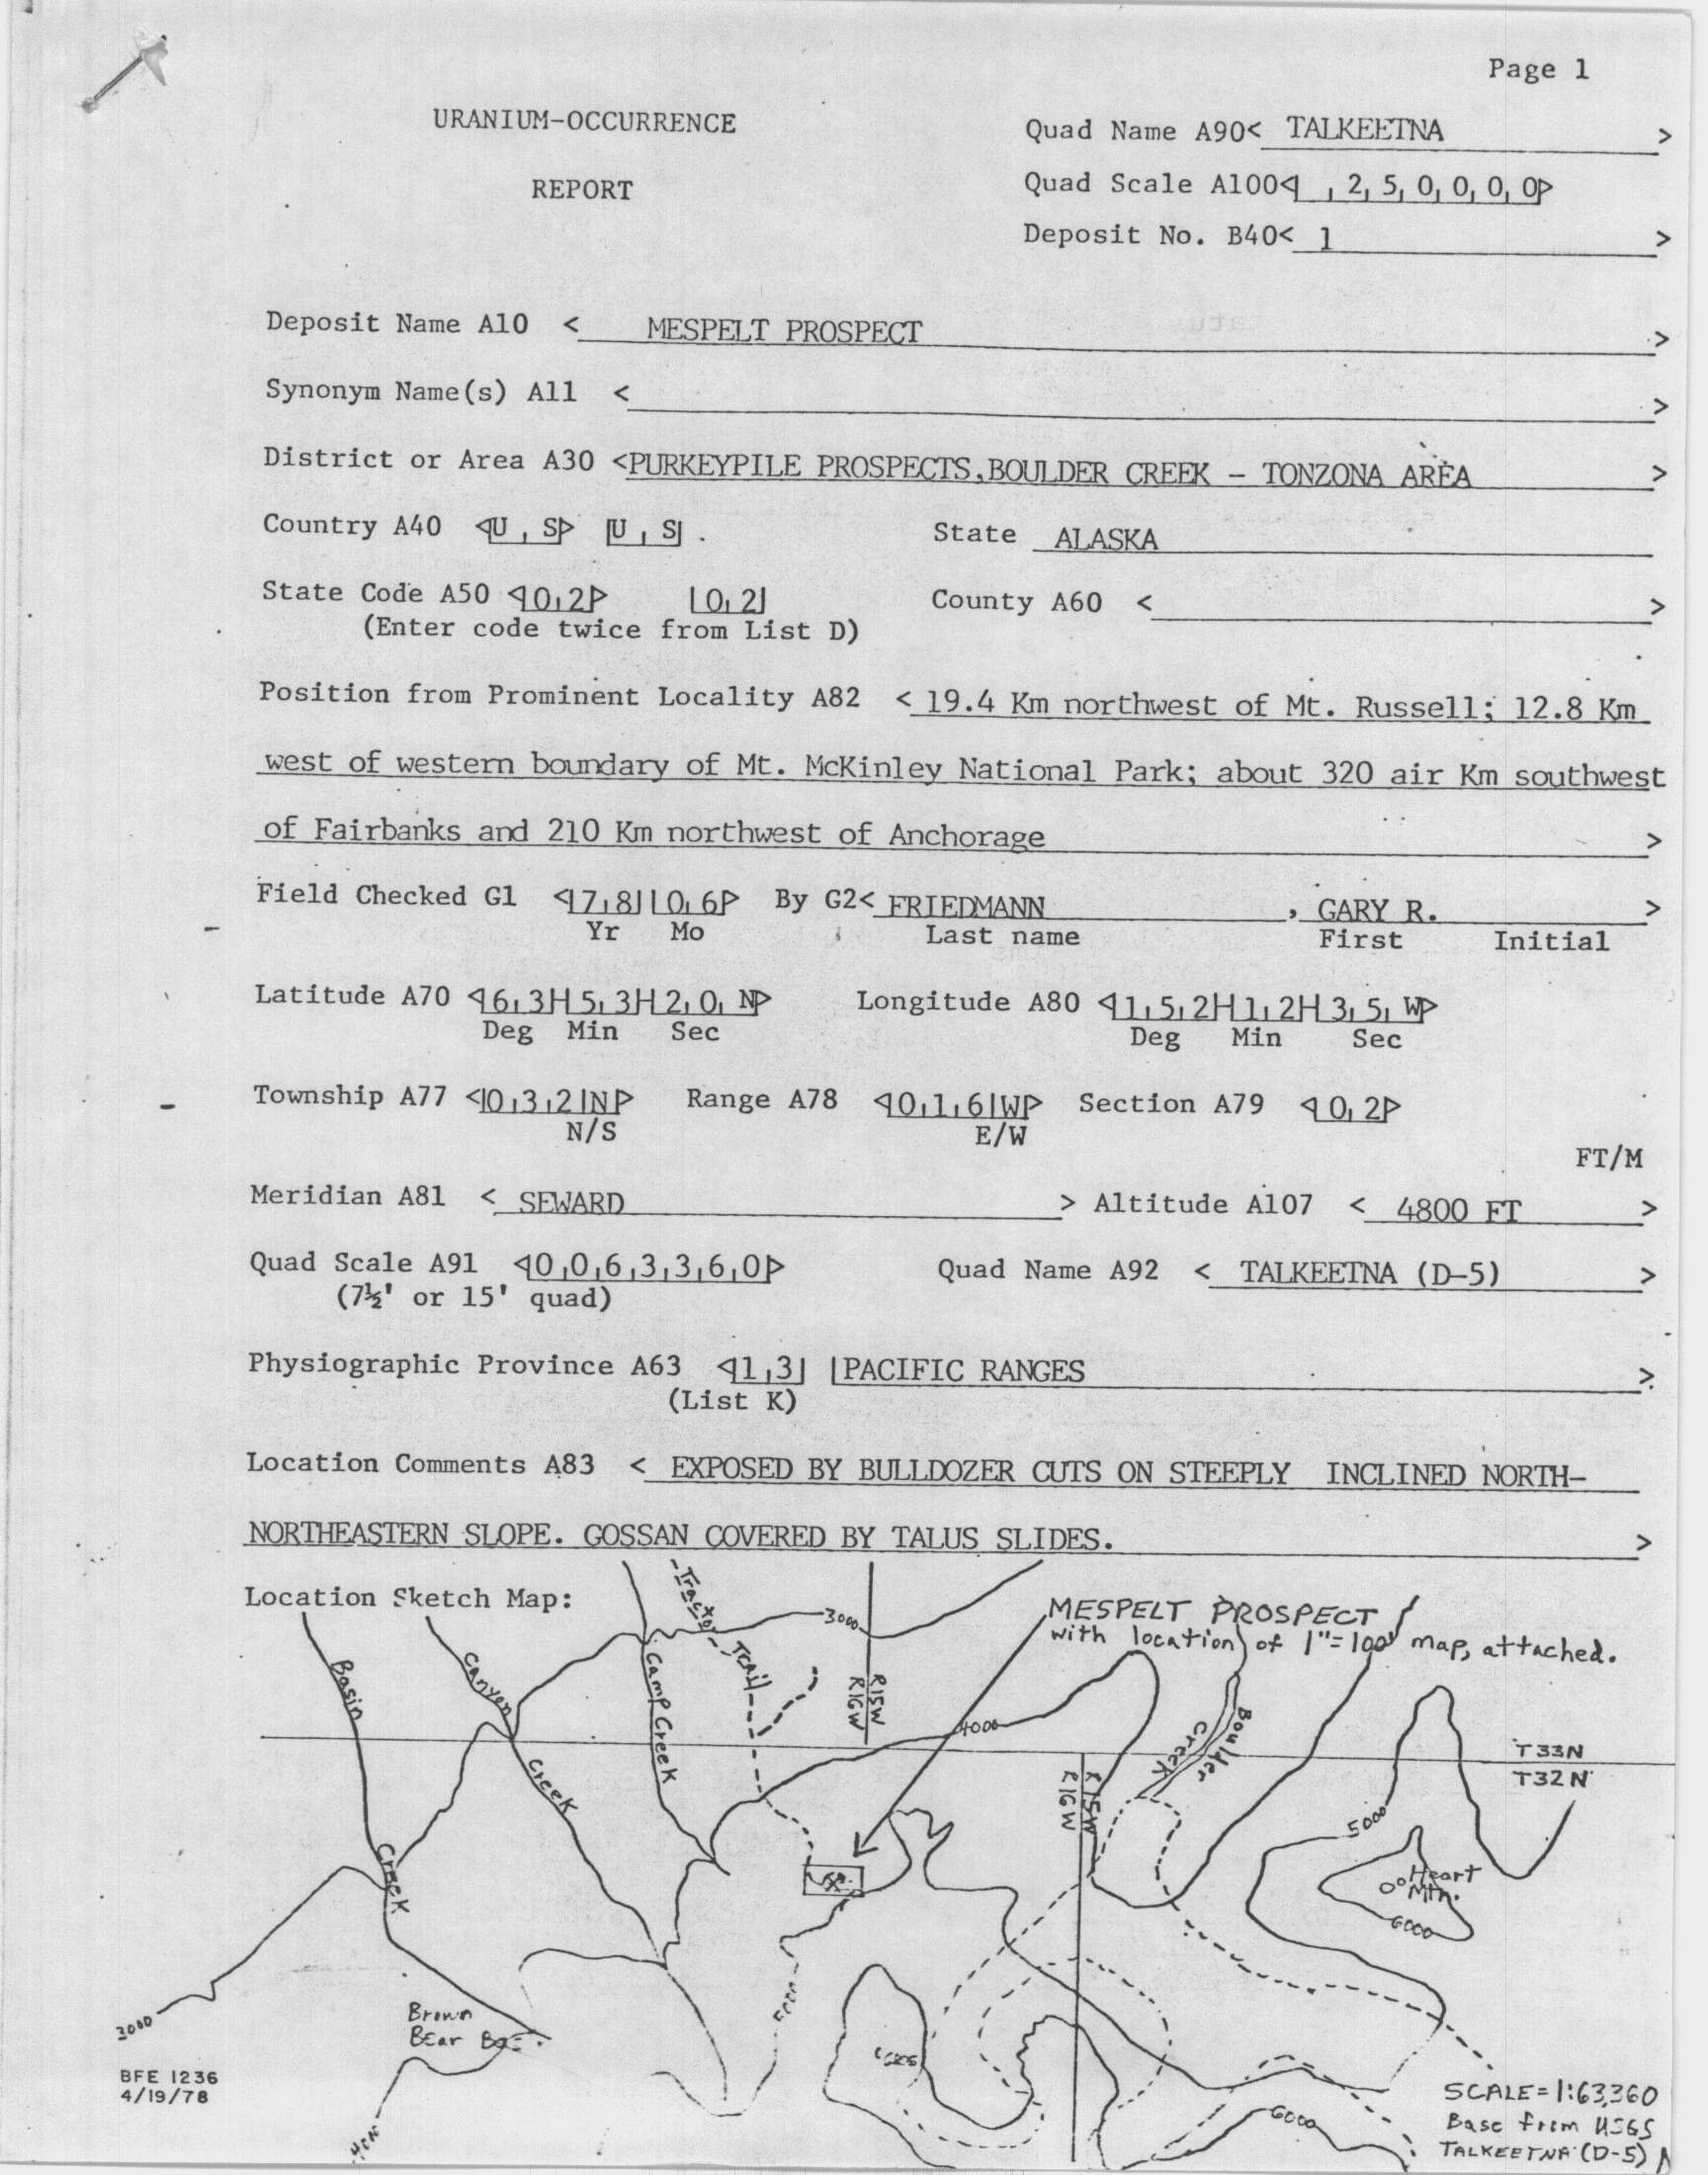 Page 1
URANIUM-OCCURRENCE
REPORT
Quad Name A90< TALKEETNA >
Quad Scale A100< , 2, 5, 0, 0, 0, 0>
Deposit No. B40< 1 >
Deposit Name A10 < MESPELT PROSPECT >
Synonym Name(s) A11 < >
District or Area A30 <PURKEYPILE PROSPECTS,BOULDER CREEK - TONZONA AREA >
Country A40 <U,S> |U,S| . State ALASKA
State Code A50 <0,2> |0,2| County A60 < >
(Enter code twice from List D)
Position from Prominent Locality A82 < 19.4 Km northwest of Mt. Russell; 12.8 Km
west of western boundary of Mt. McKinley National Park; about 320 air Km southwest
of Fairbanks and 210 Km northwest of Anchorage >
Field Checked G1 <7,8||0,6> By G2< FRIEDMANN , GARY R. >
Yr Mo Last name First Initial
Latitude A70 <6,3H5,3H2,0, N> Longitude A80 <1,5,2H1,2H3,5, W>
Deg Min Sec Deg Min Sec
Township A77 <0,3,2|N> Range A78 <0,1,6|W> Section A79 <0,2>
N/S E/W
FT/M
Meridian A81 < SEWARD > Altitude A107 < 4800 FT >
Quad Scale A91 <0,0,6,3,3,6,0> Quad Name A92 < TALKEETNA (D-5) >
(7½' or 15' quad)
Physiographic Province A63 <1,3| |PACIFIC RANGES >
(List K)
Location Comments A83 < EXPOSED BY BULLDOZER CUTS ON STEEPLY INCLINED NORTH-
NORTHEASTERN SLOPE. GOSSAN COVERED BY TALUS SLIDES. >
Location Sketch Map:
MESPELT PROSPECT
with location of 1"=100' map, attached.
Tractor Trail
3000
Basin Creek
Canyon Creek
Camp Creek
R16W R15W
4000
Boulder Creek
T33N
T32N
R16W R15W
5000
Heart Mtn.
6000
5000
3000
Brown
Bear
6000
BFE 1236
4/19/78
SCALE=1:63,360
Base from USGS
TALKEETNA (D-5)